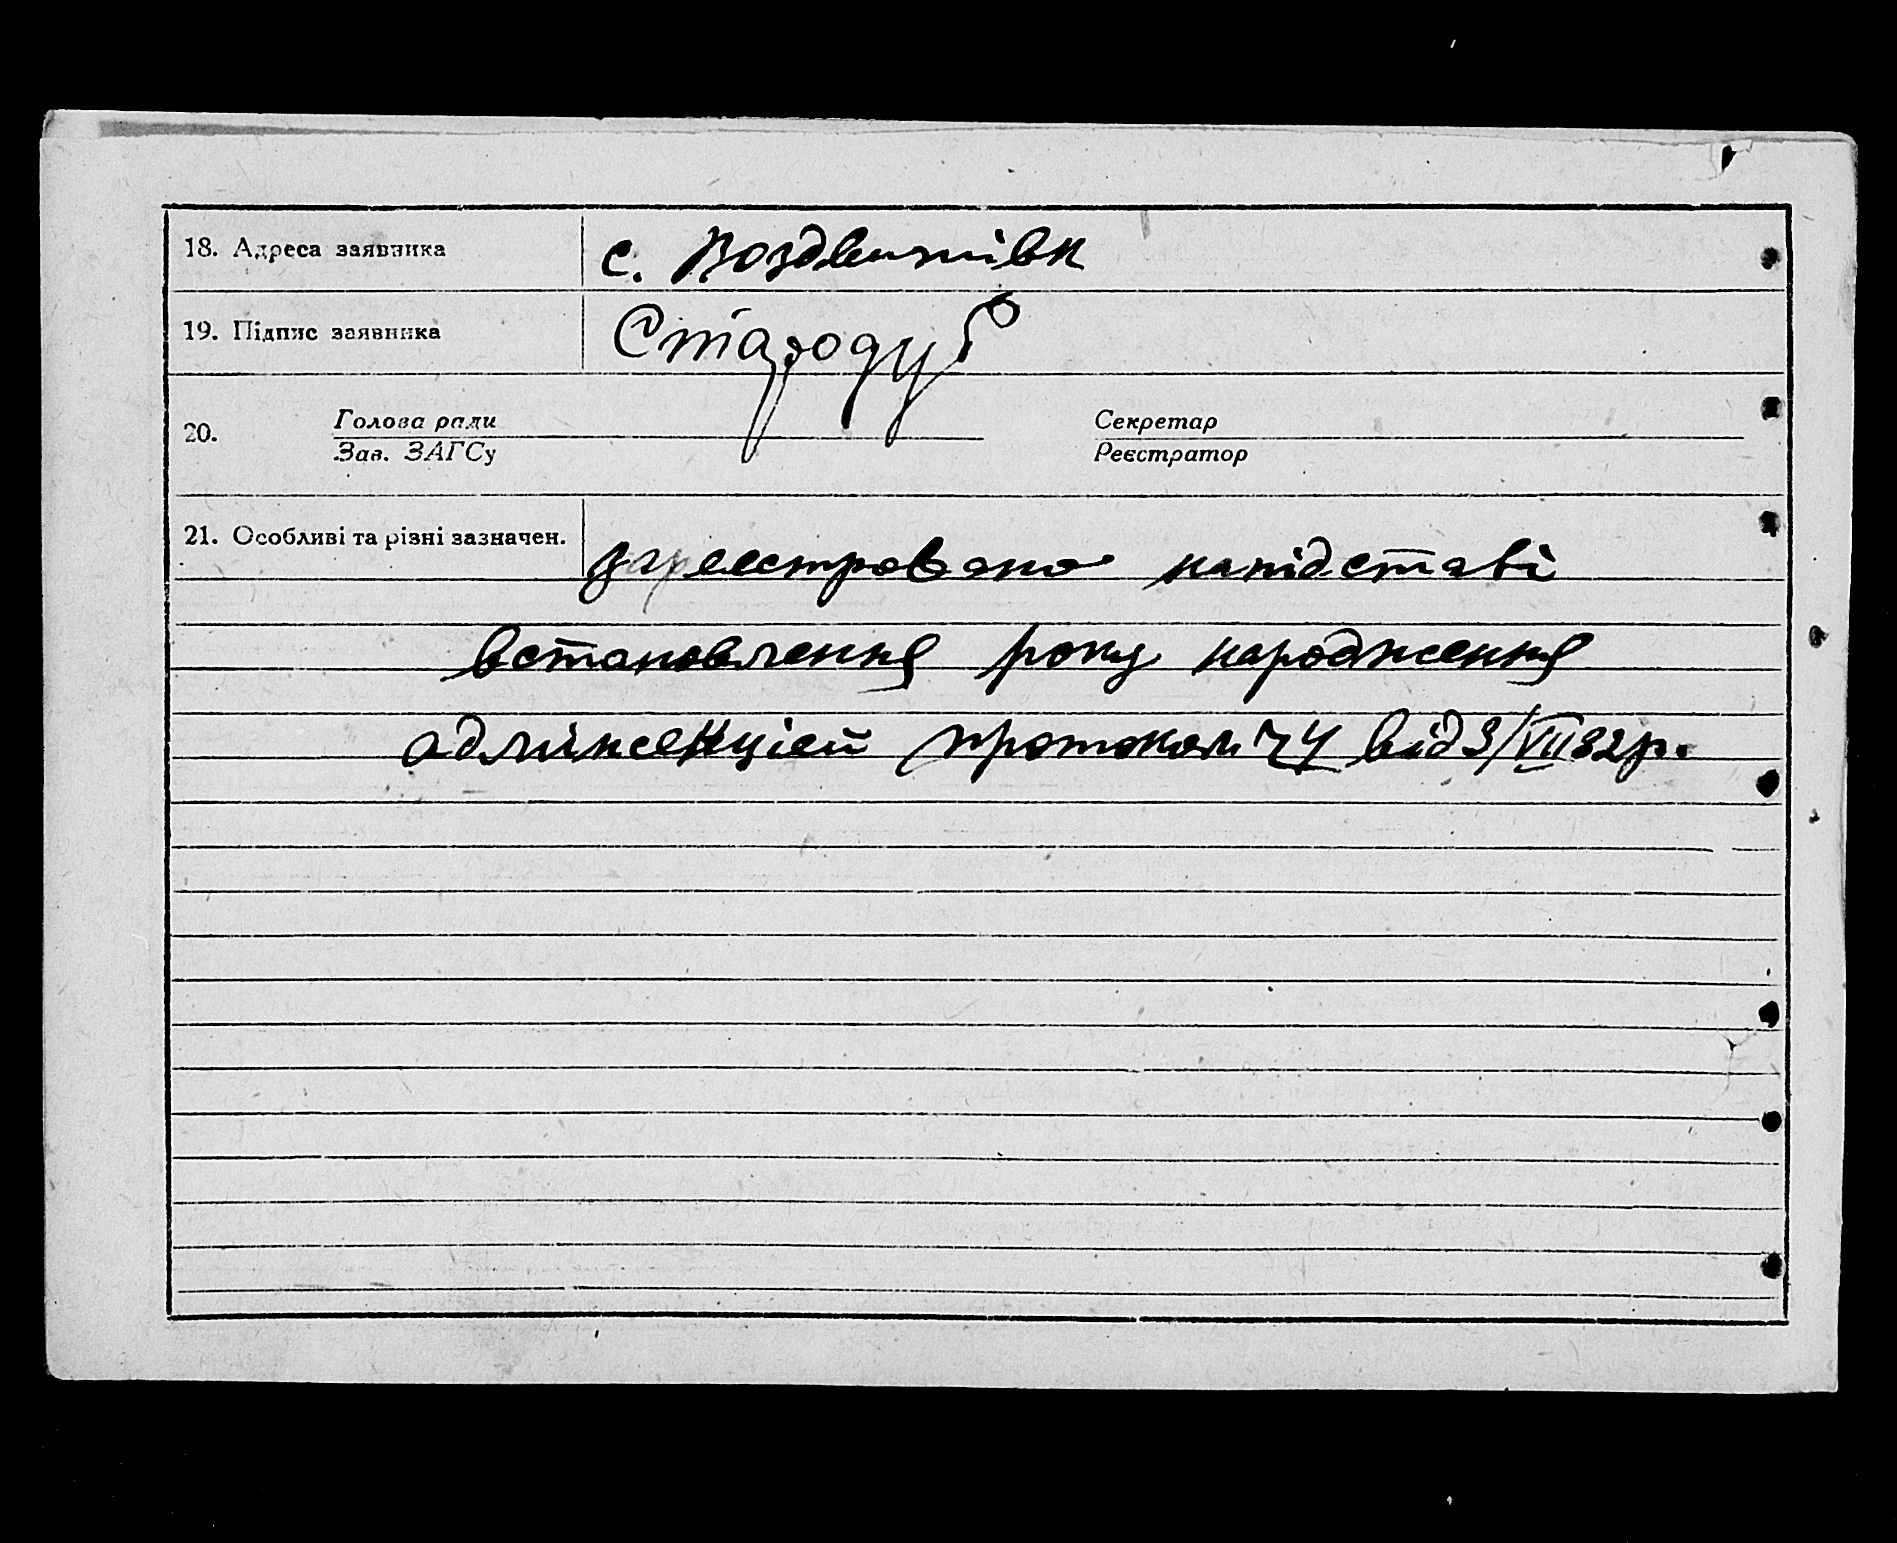 18. Адреса заявника с. Воздвижівк
19. Підпис заявника Стародуб
20. Голова ради Секретар
Зав. ЗАГСу Реєстратор
21. Особливі та різні зазначен. зареєстровано на підставі
встановлення року народження
протокол від 3/VII 32 р.